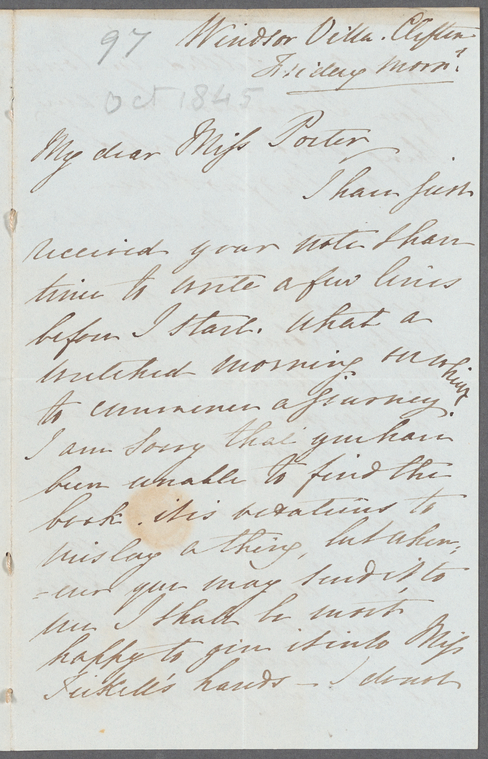 97
Windsor Villa. Clifton
Friday Mornᵍ
Oct 1845
My dear Miss Porter
I have just
received your note I have
time to write a few lines
before I start. What a
wretched morning on which
to commence a journey.
I am sorry that you have
been unable to find the
book. it is vexatious to
mislay a thing, but when=
=ever you may send it to
me I shall be most
happy to give it into Miss
hands – I do not